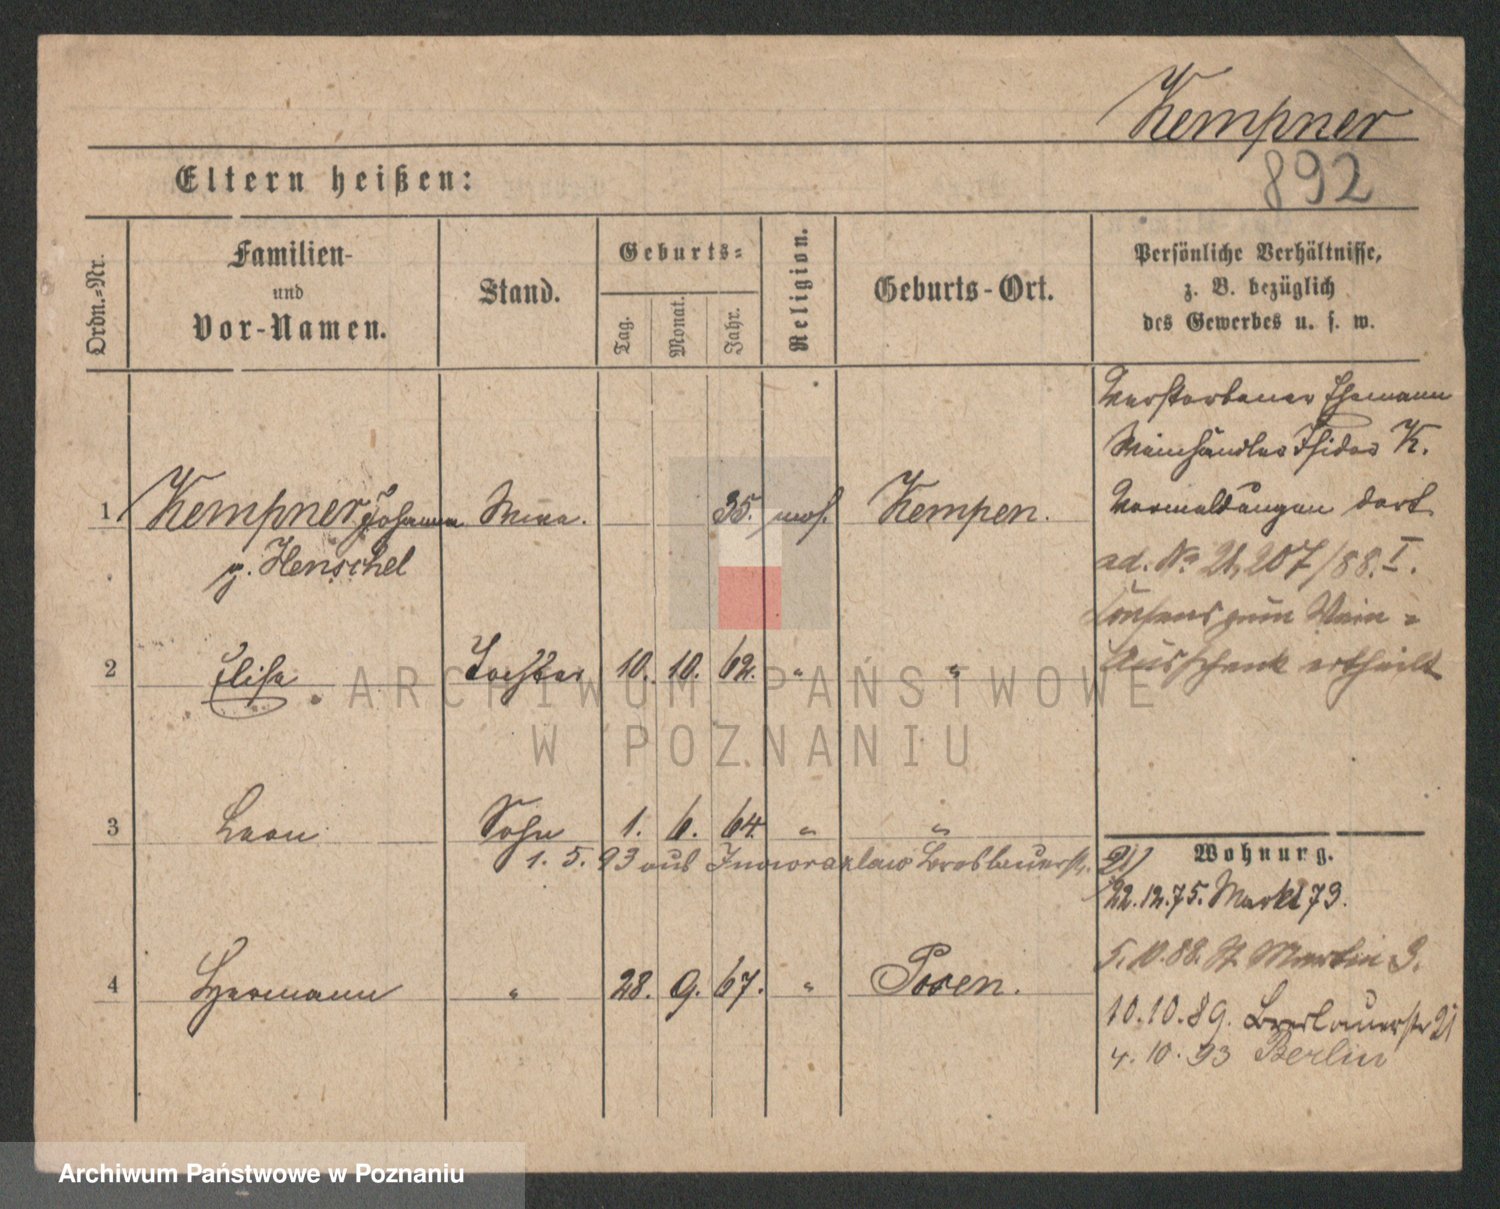 Kempner
892
Eltern heißen:
Ordn.-Nr.
Familien-
und
Vor-Namen.
Stand.
Geburts-
Tag.
Monat.
Jahr.
Religion.
Geburts-Ort.
Persönliche Verhältnisse,
z. B. bezüglich
des Gewerbes u. s. w.
Verstorbener Ehemann
Weinhändler Isidor K.
1 Kempner Johanna Wwe. 35. mos. Kempen.
Vermeldungen dort
g. Henschel
ad. No 21,207/88. I.
Consens zum Wein-
Ausschank ertheilt
2 Elise Tochter 10. 10. 62. " "
3 Leon Sohn 1. 6. 64. " "
1. 5. 93 aus Inowrazlaw Breslauerstr. 21
Wohnung.
22.12.75. Markt 73.
4 Hermann " 28. 9. 67. " Posen.
5.10.88. St Martin 3.
10.10.89. Breslauerstr 21
4. 10. 93 Berlin
ARCHIWUM PAŃSTWOWE
W POZNANIU
Archiwum Państwowe w Poznaniu